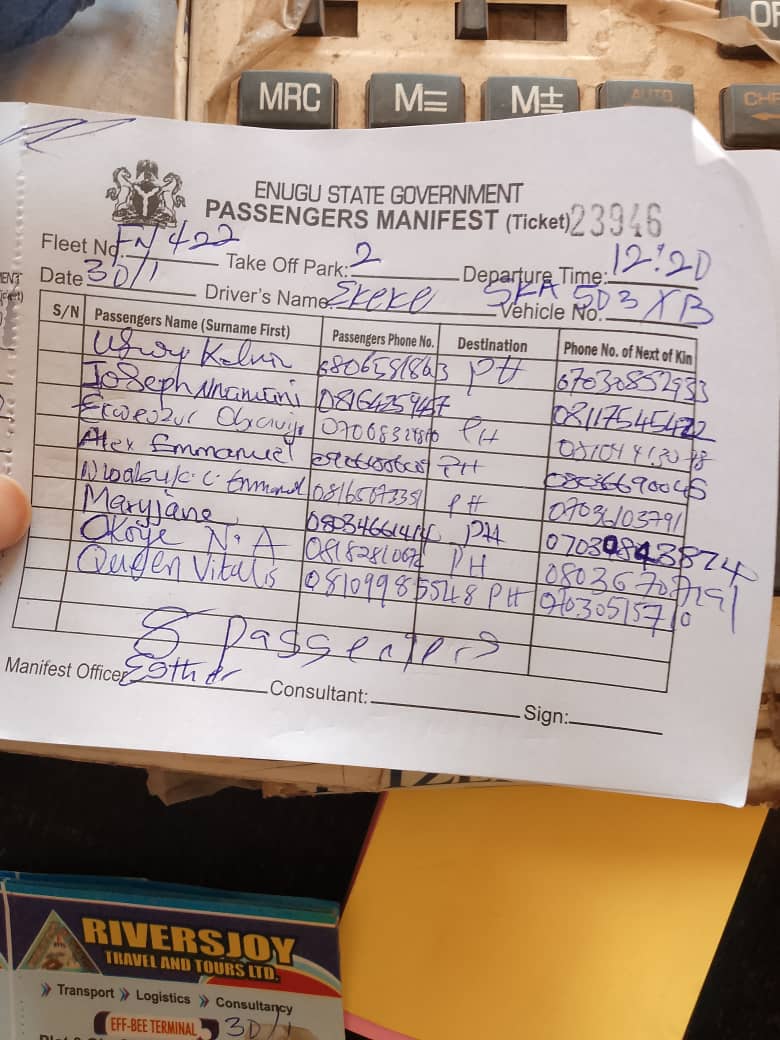 MRC M= M± AUTO
ENUGU STATE GOVERNMENT
PASSENGERS MANIFEST (Ticket) 23946
Fleet No. FN 422 Take Off Park: 2 Departure Time: 12:20
Date 30/1 Driver's Name Ekeke Vehicle No: SKA 503 XB
S/N Passengers Name (Surname First) Passengers Phone No. Destination Phone No. of Next of Kin
Kelvin PH 07030852933
Joseph Nnamani 08164259457 08117545422
PH
Alex Emmanuel PH 08036690045
Emmanuel 08165073351 PH 07036103791
Maryjane 08034661414 PH 07030843874
Okoye N. A PH
Queen Vitalis 08109985548 PH 07030515710
8 Passengers
Manifest Officer Esther Consultant: Sign:
RIVERSJOY
TRAVEL AND TOURS LTD.
Transport Logistics Consultancy
EFF-BEE TERMINAL 30/1